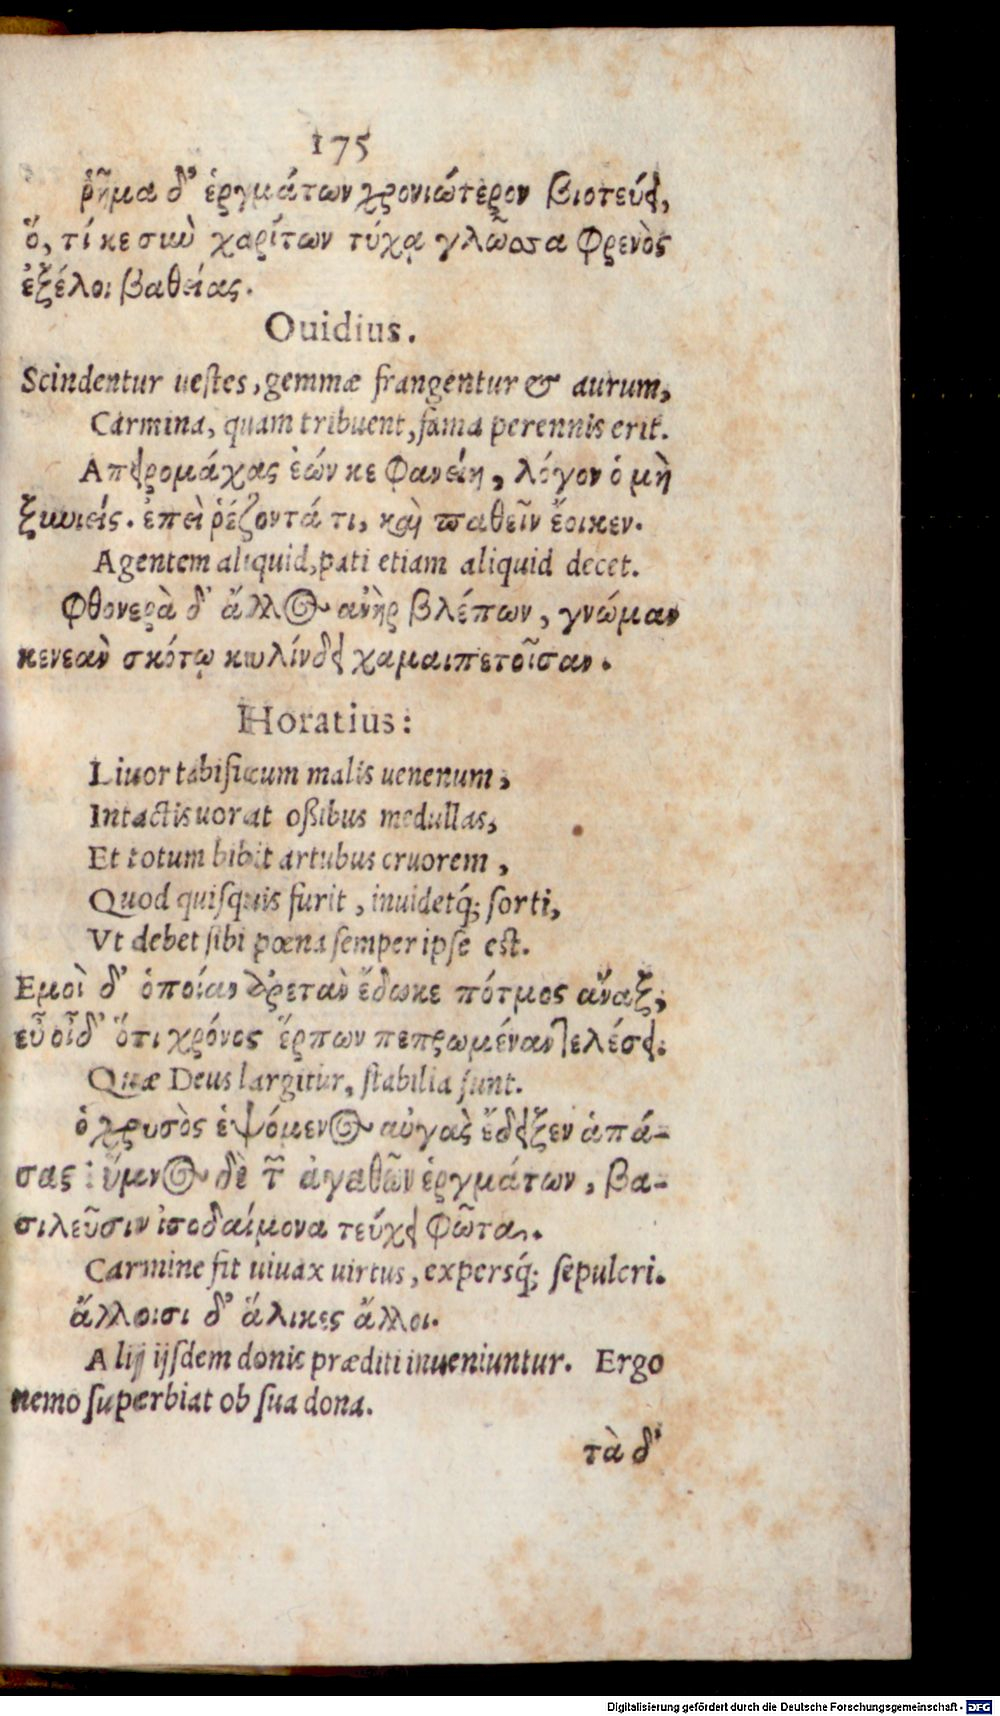 175
ῥῆμα δ’ ἑργμάτων χρονιώτερον βιοτεύει,
ὅ, τί κε σιωὺ χαρίτων τύχᾳ γλῶσσα φρενὸς
ἐξέλοι βαθείας.
Ouidius.
Scindentur uestes, gemmæ frangentur & aurum,
Carmina, quam tribuent, fama perennis erit.
Απειρομάχας ἐών κε φανείη, λόγον ὁ μὴ
ξυνιείς. ἐπεὶ ῥέζοντά τι, καὶ παθεῖν ἔοικεν.
Agentem aliquid, pati etiam aliquid decet.
Φθονερὰ δ’ ἄλλος ἀνὴρ βλέπων, γνώμαν
κενεὰν σκότῳ κυλίνδει χαμαιπετοῖσαν.
Horatius:
Liuor tabificum malis uenenum,
Intactis uorat oßibus medullas,
Et totum bibit artubus cruorem,
Quod quiſquis furit, inuidetq́; ſorti,
Vt debet ſibi pœna ſemper ipſe eſt.
Εμοὶ δ’ ὁποίαν ἀρετὰν ἔδωκε πότμος ἄναξ,
εὖ οἶδ’ ὅτι χρόνος ἕρπων πεπρωμέναν τελέσει.
Quæ Deus largitur, ſtabilia ſunt.
ὁ χρυσὸς ἑψόμενος αὐγὰς ἔδειξεν ἁπά-
σας: ὕμνος δὲ τῶν ἀγαθῶν ἑργμάτων, βα-
σιλεῦσιν ἰσοδαίμονα τεύχει φῶτα.
Carmine fit uiuax uirtus, expersq́; ſepulcri.
ἄλλοισι δ’ ἅλικες ἄλλοι.
Alij ijſdem donis præditi inueniuntur. Ergo
nemo ſuperbiat ob ſua dona.
τὰ δ’
Digitalisierung gefördert durch die Deutsche Forschungsgemeinschaft - DFG